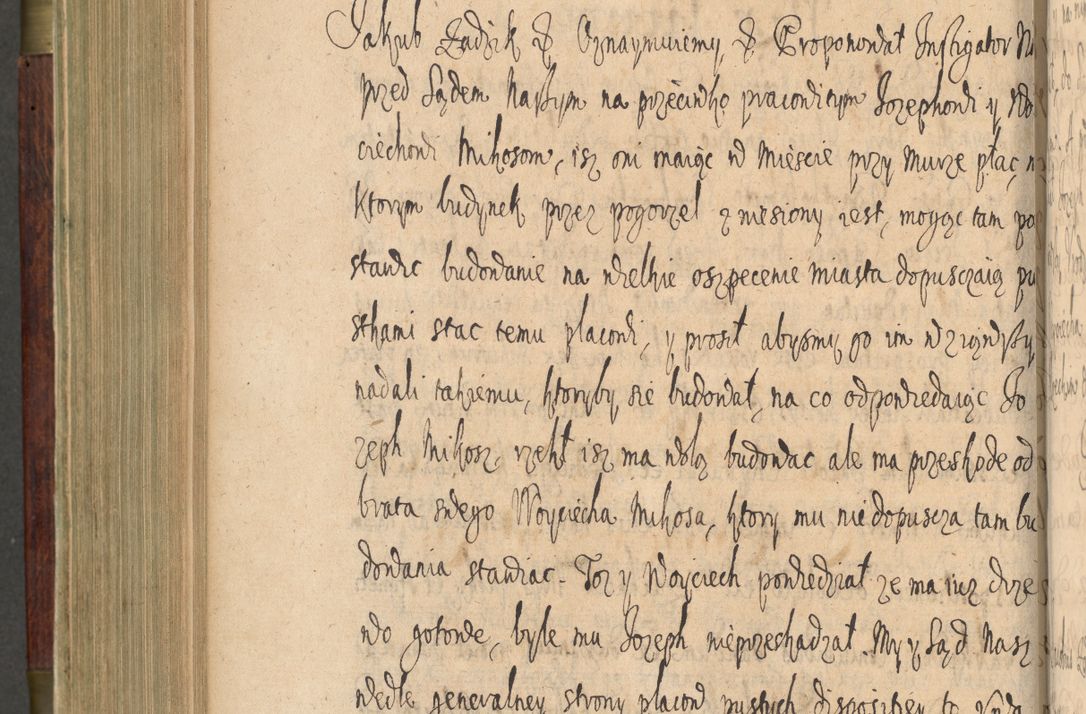 Jakub Ładzik &c Oznaymuiemy &c Proponował Instigator
przed Sądem Naszym na przećiwko pracowitym Jozephowi y Wo
ciechowi Mikosom, isz oni maiąc w Mieście przy Murze płac, n
Ktorym budynek przez pogorzel zniesiony iest, mogąc tam po
stawic budowanie na wielkie oszpecenie miasta dopusczaią pu
stkami stac temu placowi, y prosił abysmy go im wziąwszy
nadali takiemu, ktoryby sie budował, na co odpowiedaiąc Jo
zeph Mikosz, rzekł isz ma wolą budowac ale ma przeskode od
brata swego Woyciecha Mikosa, ktory mu nie dopuscza tam bu
dowania stawiac. Tosz y Woyciech powiedział ze ma iusz drze
wo gotowe, byle mu Jozeph nieprzeskadzał. My y Sąd Nasz
wedle generalney strony placow pustych disposityey to